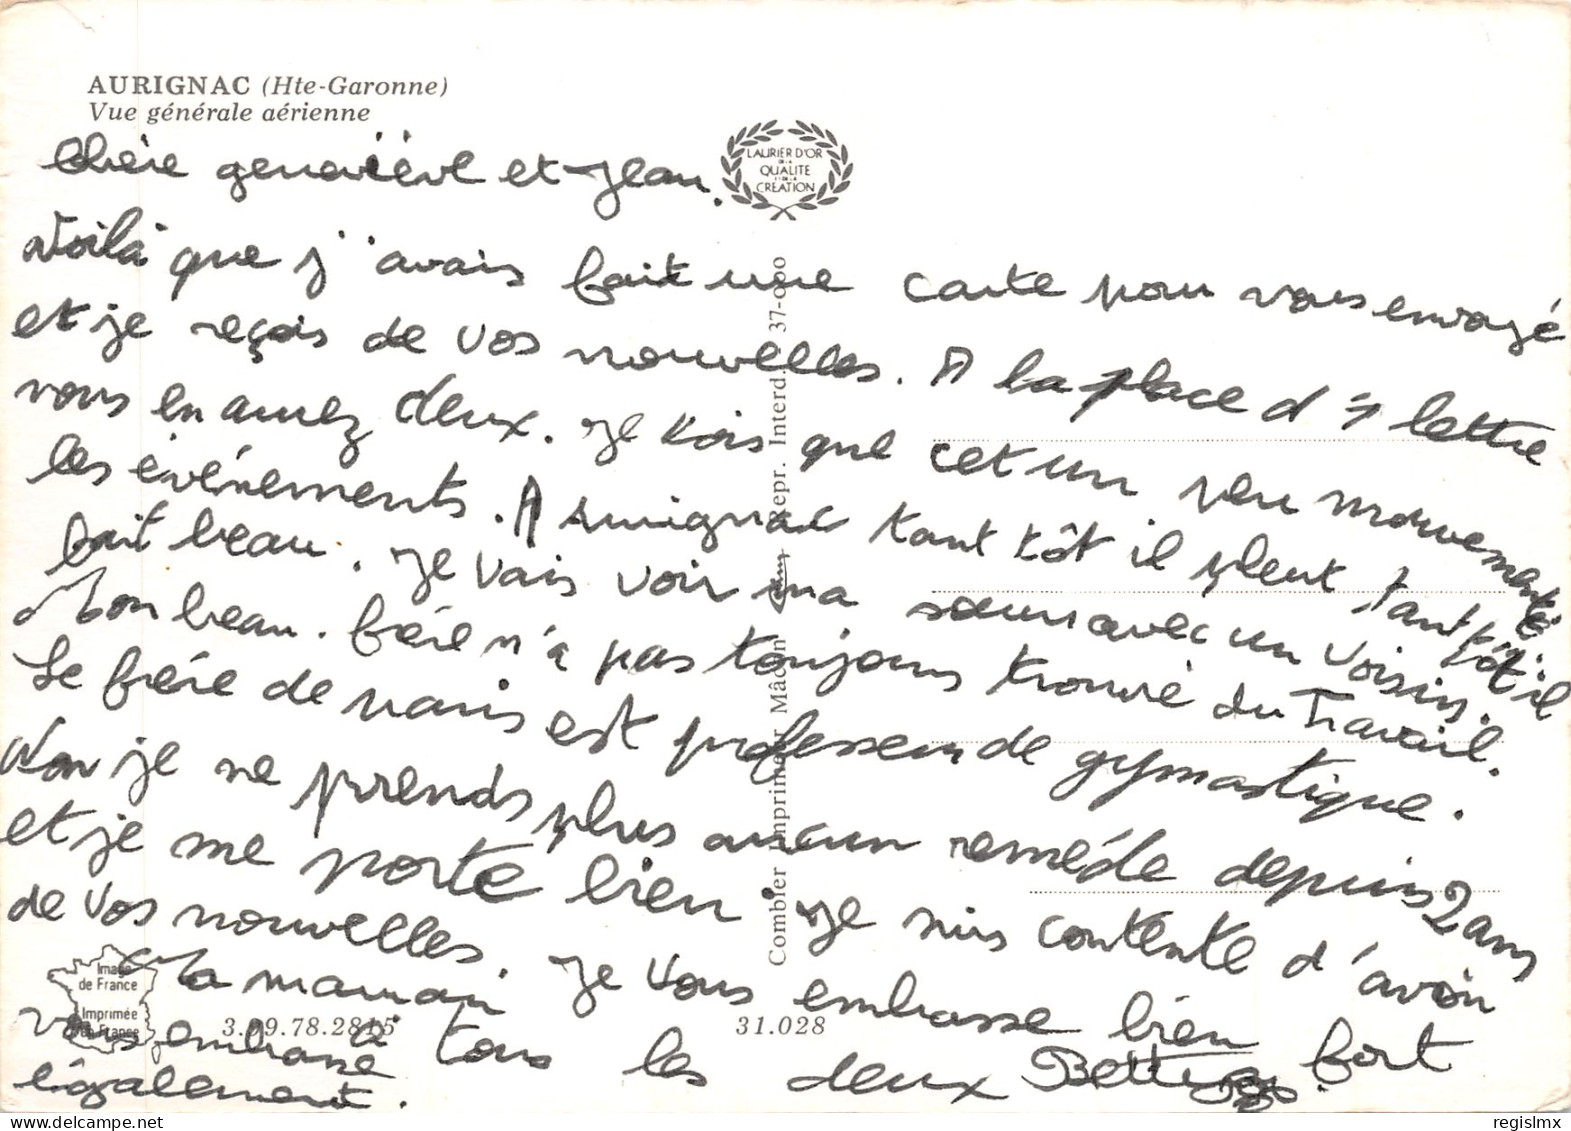 AURIGNAC (Hte-Garonne)
Vue générale aérienne
LAURIER D'OR
DE LA
QUALITE
DE LA
CREATION
Chère geneviève et Jean.
Voilà que j'avais fait une carte pour vous envoyé
et je reçois de vos nouvelles. A la place d'1 lettre
vous en aurez deux. Je vois que cet un peu mouvementé
les évènements. A Aurignac tant tôt il pleut, tant tôt il
fait beau. Je vais voir ma soeur avec un voisin.
Mon beau-frère n'a pas toujours trouvé du Travail.
Le frère de paris est professeur de gymastique.
Non je ne prends plus aucun remède depuis 2 ans
et je me porte bien Je suis contente d'avoir
de vos nouvelles. Je vous embrasse bien fort
à tous les deux Betty
La maman
vous embrasse
également.
Combier Imprimeur Mâcon
Repr. Interd. 37-000
Image
de France
Imprimée
en France
3.99.78.2815
31.028
regislmx